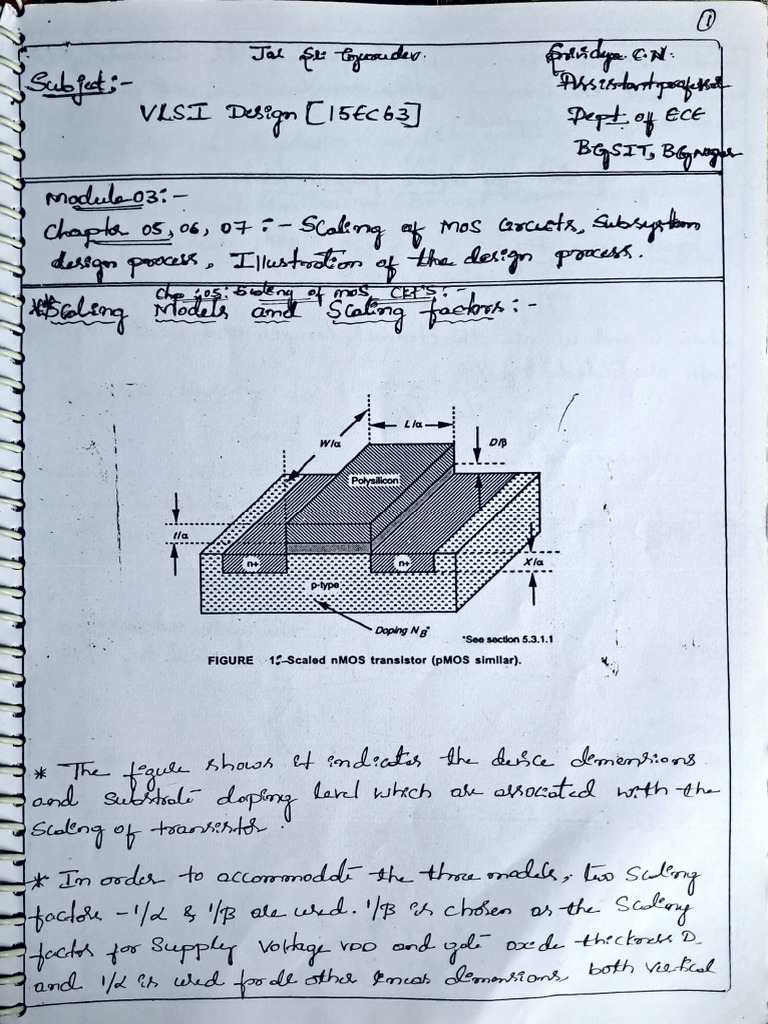 ①
Jai Sri Gurudev.
Srividya C.N.
Subject:-
Assistant professor
VLSI Design [15EC63]
Dept. of ECE
BGSIT, BG Nagar
Module 03:-
Chapter 05, 06, 07 :- Scaling of MOS Circuits, Subsystem
design process, Illustration of the design process.
Chp :05: Scaling of MOS CKTS:-
**Scaling Models and Scaling factors:-
L/α
W/α
D/β
Polysilicon
t/α
n+
n+
X/α
p-type
Doping N_B*
*See section 5.3.1.1
FIGURE 1:-Scaled nMOS transistor (pMOS similar).
* The figure shows it indicates the device dimensions
and substrate doping level which are associated with the
Scaling of transistor.
* In order to accommodate the three models, two Scaling
factors - 1/α & 1/β are used. 1/β is chosen as the Scaling
factor for Supply Voltage VDD and gate oxide thickness D
and 1/α is used for all other linear dimensions, both vertical